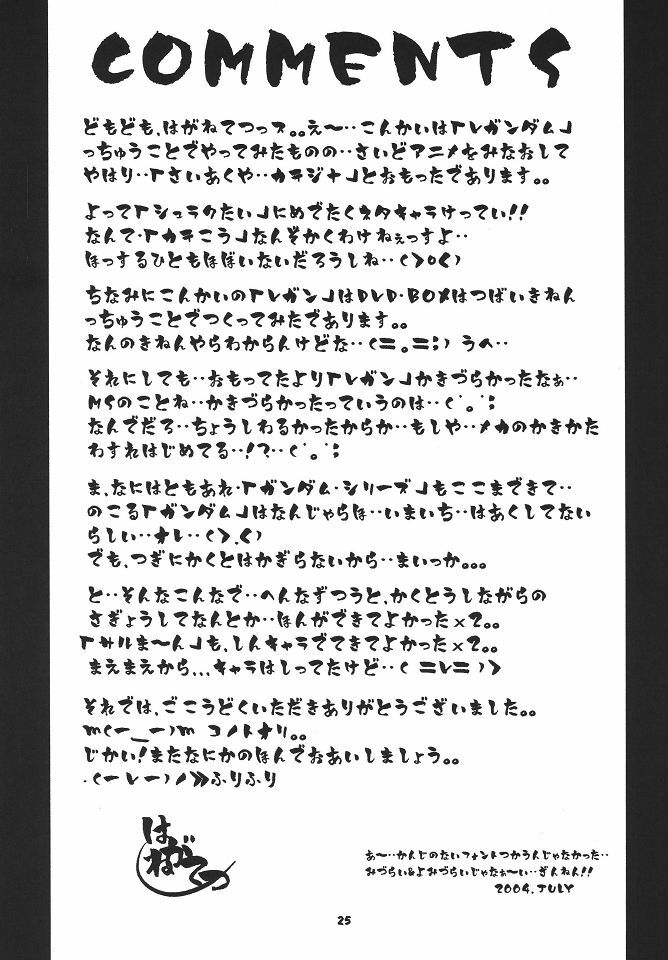 COMMENTS
どもども、はがねてつっス。。え〜‥こんかいは「Vガンダム」
っちゅうことでやってみたものの‥さいどアニメをみなおして
やはり‥「さいあくや‥カテジナ」とおもったであります。。
よって「シュラクたい」にめでたくネタキャラけってい!!
なんで・「カテこう」なんぞかくわけねぇっすよ‥
ほっするひともほぼいないだろうしね‥(>o<)
ちなみにこんかいの「Vガン」はDVD・BOXはつばいきねん
っちゅうことでつくってみたであります。。
なんのきねんやらわからんけどな‥(=。=;) うへ‥
それにしても‥おもってたより「Vガン」かきづらかったなぁ‥
MSのことね‥かきづらかったっていうのは‥(゜。゜;
なんでだろ‥ちょうしわるかったからか‥もしや‥メカのかきかた
わすれはじめてる‥!?‥(゜。゜;
ま、なにはともあれ・「ガンダム・シリーズ」もここまできて‥
のこる「ガンダム」はなんじゃらほ‥いまいち‥はあくしてない
らしい‥オレ‥(>.<)
でも、つぎにかくとはかぎらないから‥まいっか。。。
と‥そんなこんなで‥へんなずつうと、かくとうしながらの
さぎょうしてなんとか‥ほんができてよかった×2。。
「サルま〜ん」も、しんキャラでてきてよかった×2。。
まえまえから...キャラはしってたけど‥( =レ= )>
それでは、ごこうどくいただきありがとうございました。。
m(ー__ー)m コノトオリ。。
じかい!またなにかのほんでおあいしましょう。。
.(ーレー)ノ》ふりふり
はがねてつ
あ〜‥かんじのないフォントつかうんじゃなかった‥
みづらい&よみづらいじゃなぁ〜い‥ざんねん!!
2004.JULY
25